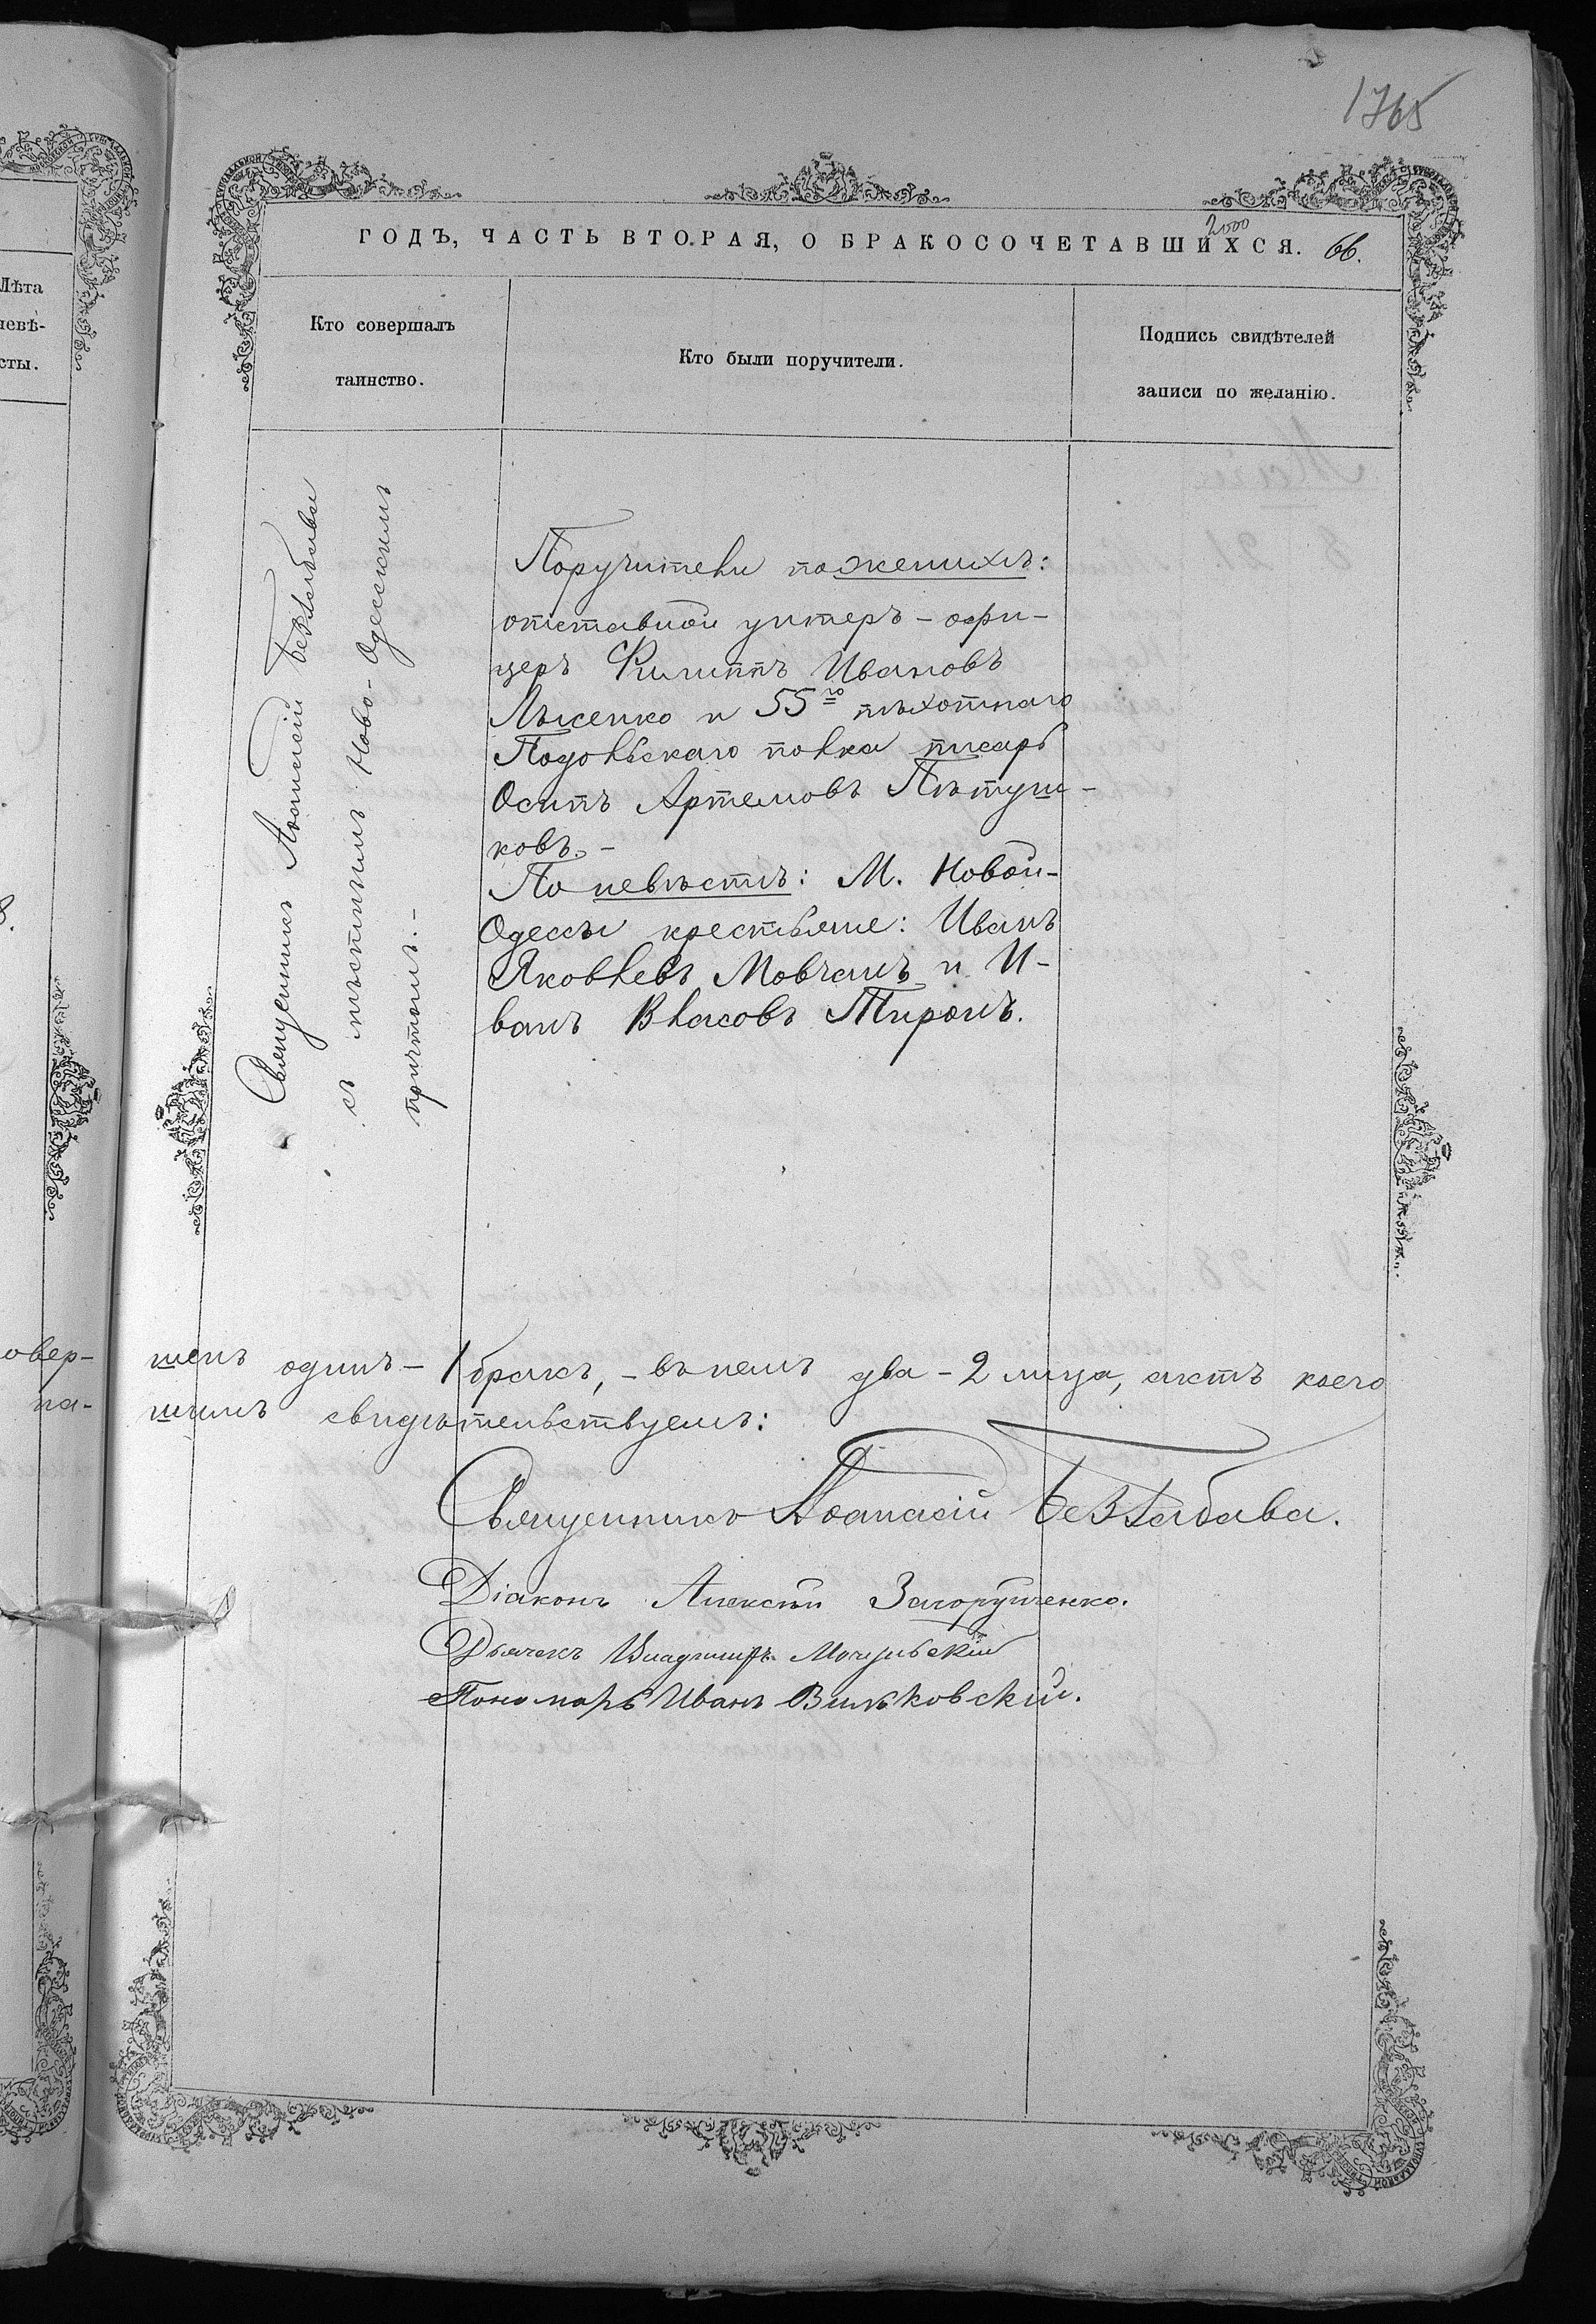 1765
ГОДЪ, ЧАСТЬ ВТОРАЯ, О БРАКОСОЧЕТАВШИХСЯ. 66.
2000
Лѣта
невѣ-
сты.
Кто совершалъ
таинство.
Кто были поручители.
Подпись свидѣтелей
записи по желанію.
Священникъ Аѳанасій
съ мѣстнымъ Ново-Одесскимъ
причтомъ.-
Поручители по женихѣ:
отставной унтеръ-офи-
церъ Филиппъ Ивановъ
Лысенко и 55го пѣхотнаго
Подольскаго полка писарь
Осипъ Артемовъ Пѣтуш-
ковъ.-
По невѣстѣ: М. Новой-
Одессы крестьяне: Иванъ
Яковлевъ Мовчанъ и И-
ванъ Власовъ Тиронъ.
овер- шенъ одинъ-1 бракъ,-въ немъ два-2 лица, актъ коего
на- шимъ свидѣтельствуемъ:
Священникъ Аѳанасій
Діаконъ Алексѣй
Дьячекъ Владиміръ
Пономарь Иванъ Вильковскій.